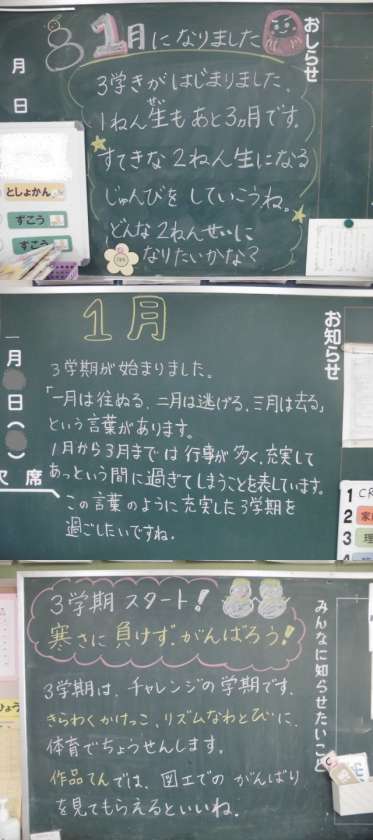 1月になりました
おしらせ
月
日
3学きがはじまりました。
1ねん生もあと3ヵ月です。
すてきな2ねん生になる
じゅんびを していこうね。
どんな2ねんせいに
なりたいかな?
としょかん
ずこう
ずこう
1月
お知らせ
一月
日
欠席
3学期が始まりました。
「一月は往ぬる、二月は逃げる、三月は去る」
という言葉があります。
1月から3月までは行事が多く、充実して
あっという間に過ぎてしまうことを表しています。
この言葉のように充実した3学期を
過ごしたいですね。
1
2
3
3学期 スタート!
寒さに負けず、がんばろう!
みんなに知らせたいこと
3学期は、チャレンジの学期です。
きらわくかけっこ、リズムなわとびに、
体育でちょうせんします。
作品てんでは、図工でのがんばり
を見てもらえるといいね。